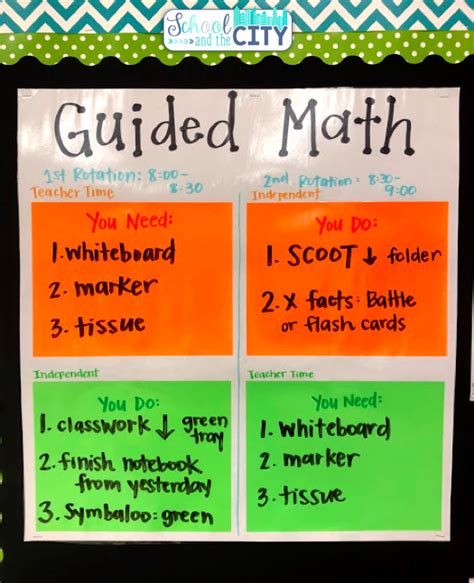 School
and the
CITY
Guided Math
1st Rotation: 8:00-
8:30
Teacher Time
You Need:
1. whiteboard
2. marker
3. tissue
2nd Rotation: 8:30-
9:00
Independent
You Do:
1. SCOOT ↓ folder
2. X facts: Battle
or flash cards
Independent
You Do:
1. classwork ↓ green
tray
2. finish notebook
from yesterday
3. Symbaloo: green
Teacher Time
You Need:
1. whiteboard
2. marker
3. tissue